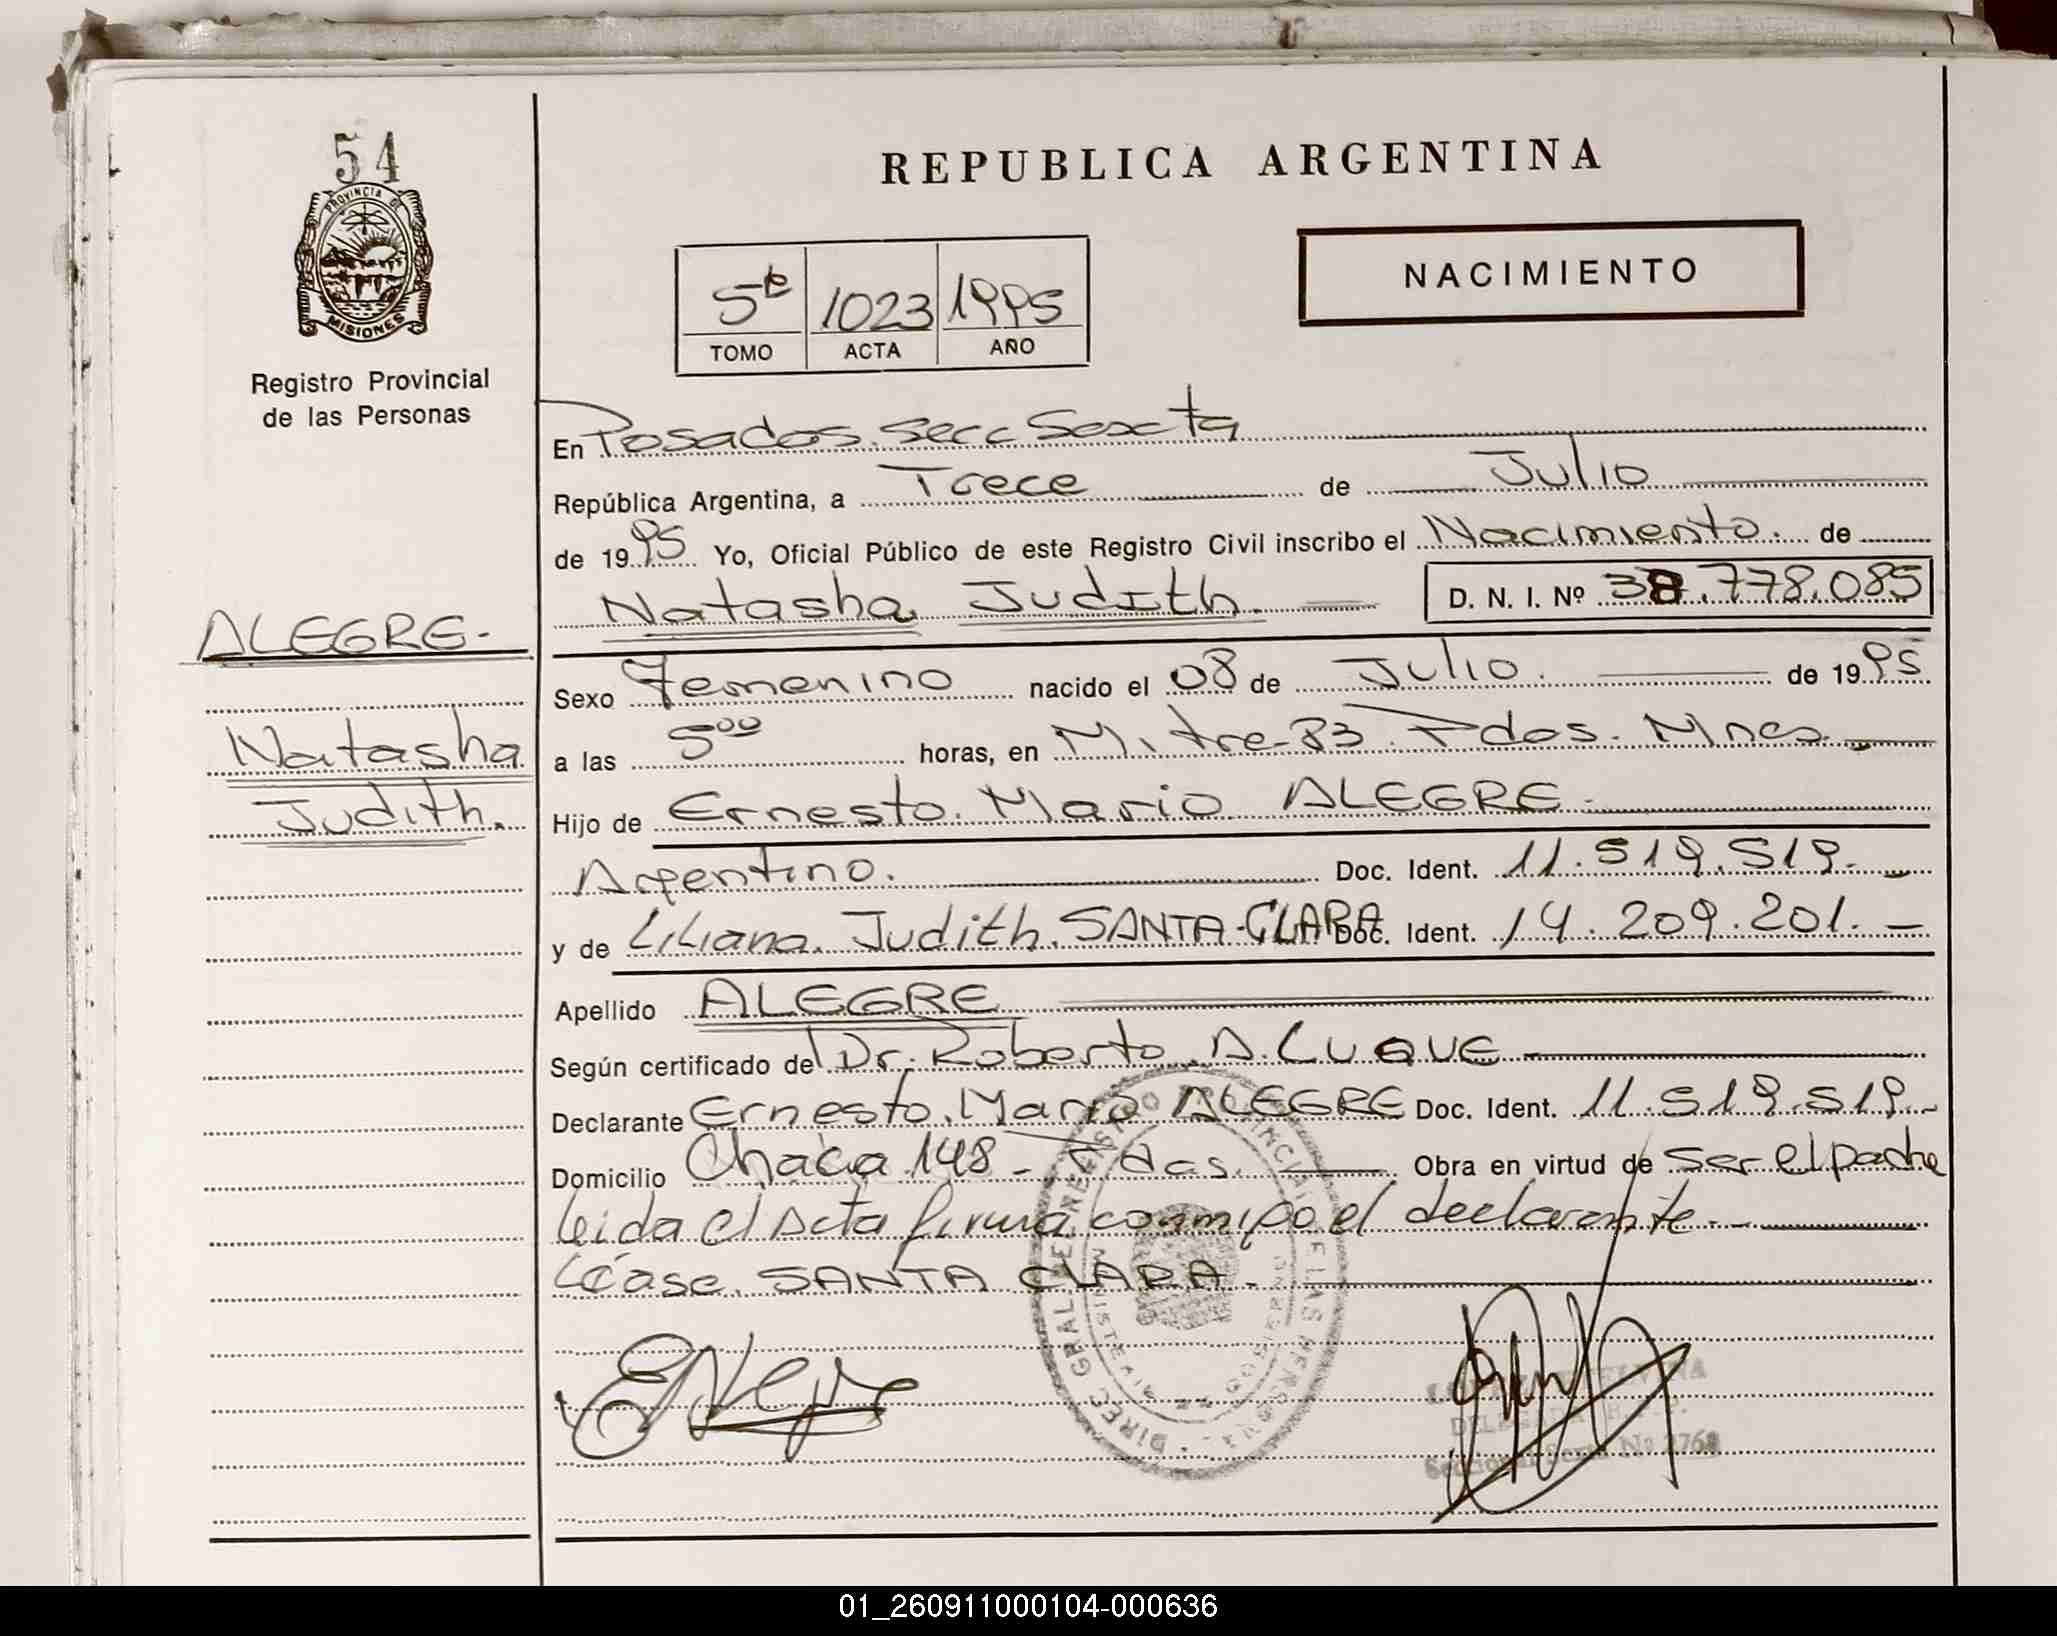 54
PROVINCIA DE
MISIONES
Registro Provincial
de las Personas
ALEGRE.
Natasha
Judith.
REPUBLICA ARGENTINA
NACIMIENTO
5to 1023 1995
TOMO ACTA AÑO
En Posadas. Secc Sexta
República Argentina, a Trece de Julio
de 1995 Yo, Oficial Público de este Registro Civil inscribo el Nacimiento. de
Natasha Judith. D. N. I. Nº 38.778.085
Sexo Femenino nacido el 08 de Julio. de 1995
a las 5⁰⁰ horas, en Mitre 83. Pdas. Mnes.
Hijo de Ernesto. Mario ALEGRE.
Argentino. Doc. Ident. 11.519.519.
y de Liliana. Judith. SANTA-CLARA Doc. Ident. 14.209.201.
Apellido ALEGRE
Según certificado del Dr. Roberto A. LUQUE
Declarante Ernesto. Mario ALEGRE Doc. Ident. 11.519.519.
Domicilio 148 - Pdas. Obra en virtud de Ser el padre
Leida el Acta firma conmigo el declarante.
Léase. SANTA CLARA.
DELEGADA R.P.P.
Seccional Sexta Nº
01_260911000104-000636